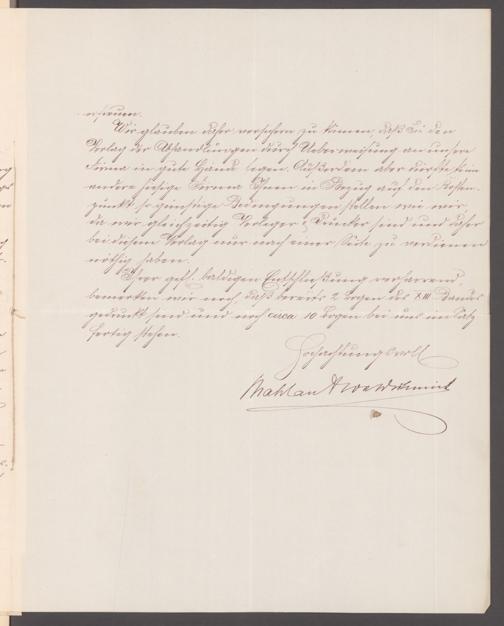 erfreuen.
Wir glauben daher versichern zu können, daß Sie den
Verlag der Abhandlungen durch Ueberweisung an unsere
Firma in gute Hände legen. Außerdem aber dürfte kaum
andere hiesige Firma Ihnen in Bezug auf den Kosten-
punkt so günstige Bedingungen stellen wie wir,
da wir gleichzeitig Verleger & Drucker sind und daher
bei diesem Verlag nur nach einer Seite zu verdienen
nöthig haben.
Ihrer gefl. baldigen Entschließung entgegensehend,
bemerken wir noch, daß bereits 2 Bogen des XIII Bandes
gedruckt sind und noch circa 10 Bogen bei uns im Satz
fertig stehen.
Hochachtungsvoll
Mahlau & Waldschmidt